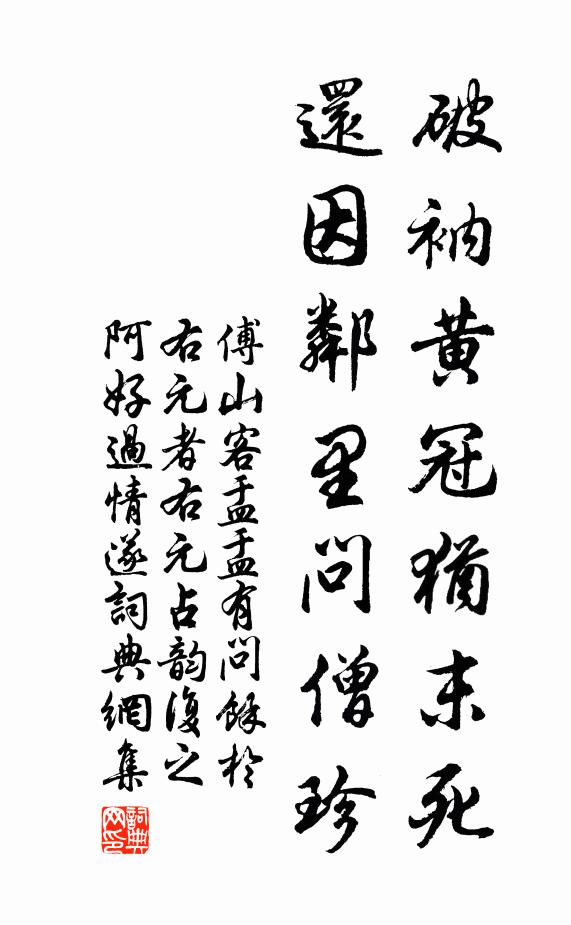 破衲黄冠猶未死
還因鄰里問僧珍
傅山客盂盂有問餘於
右元者右元占韵復之
阿好過情遂詞典網集
詞典网印